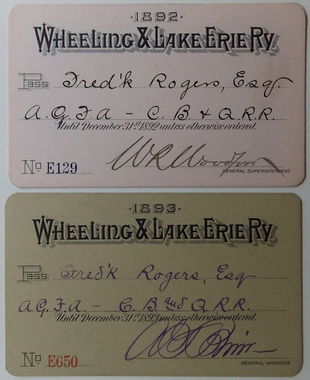 ·1892·
WHEELING & LAKE ERIE RY.
Pass Fred'k Rogers, Esq.
A. G. F. A. - C. B. & Q. R. R.
Until December 31st 1892 unless otherwise ordered.
No E129
GENERAL SUPERINTENDENT.
·1893·
WHEELING & LAKE ERIE RY.
Pass Fred'k Rogers, Esq
A. G. F. A. - C. B. and Q. R. R.
Until December 31st 1893 unless otherwise ordered.
No E650
GENERAL MANAGER.